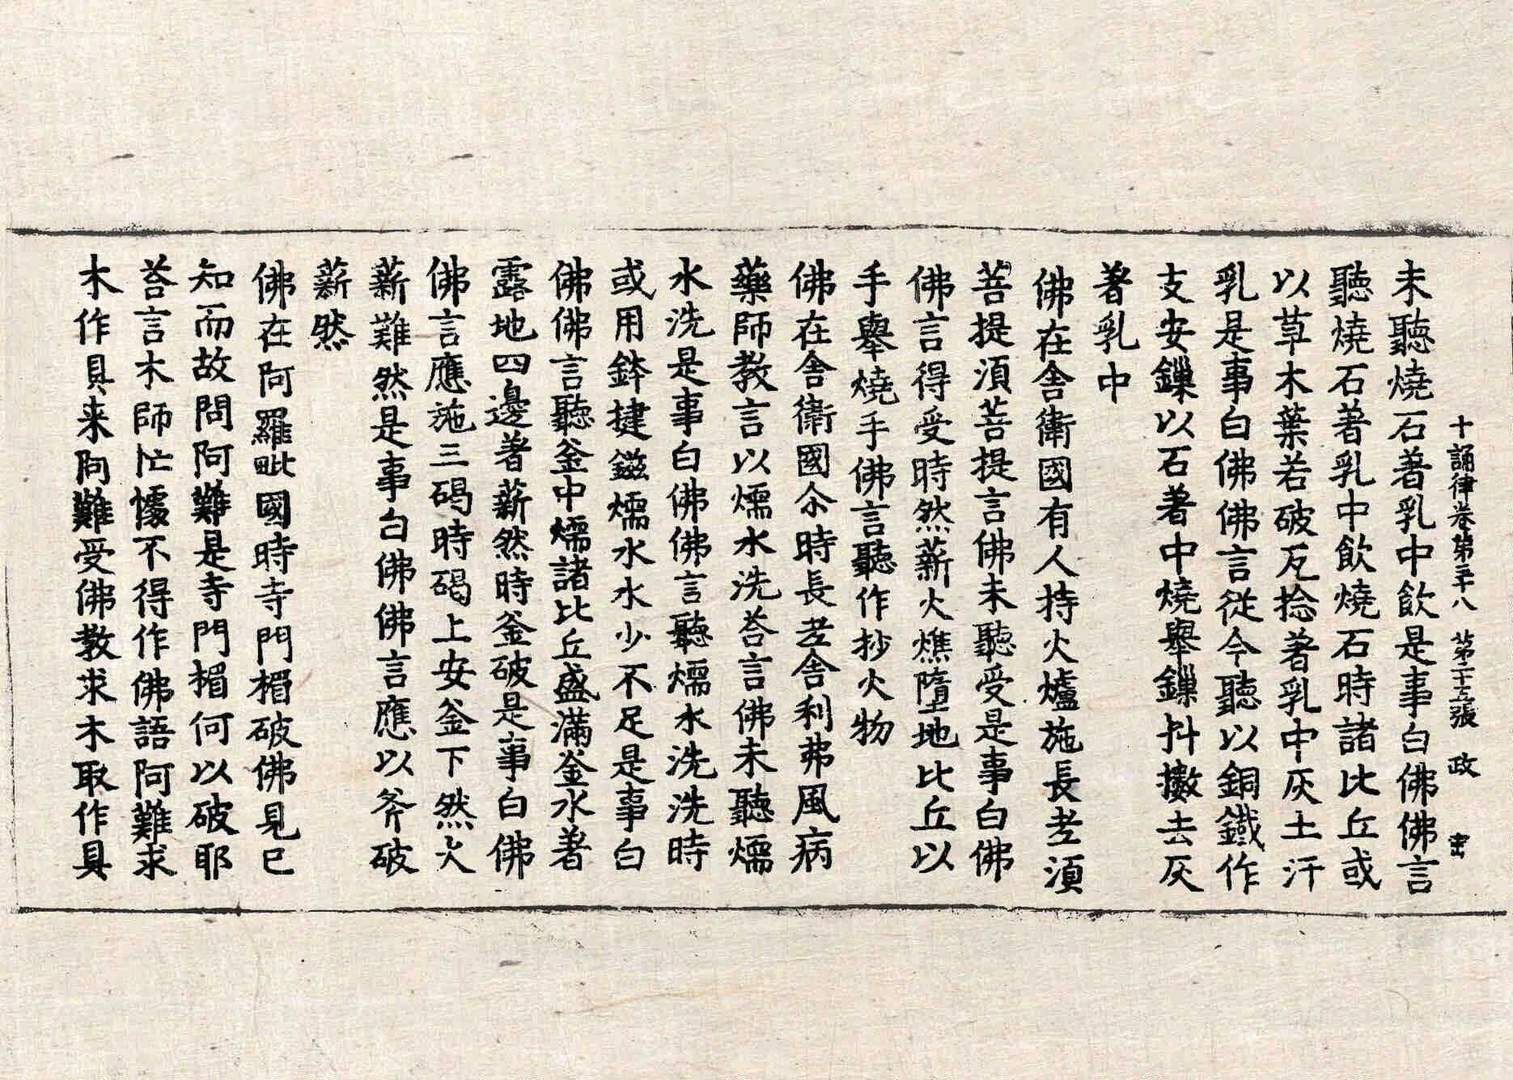 十誦律卷第三十八 第二十三張 政
未聽燒石著乳中飲是事白佛佛言
聽燒石著乳中飲燒石時諸比丘或
以草木葉若破瓦捻著乳中灰土汙
乳是事白佛佛言從今聽以銅鐵作
支安鏁以石著中燒舉鏁抖擻去灰
著乳中
佛在舍衛國有人持火爐施長老須
菩提須菩提言佛未聽受是事白佛
佛言得受時然薪火燋墮地比丘以
手舉燒手佛言聽作抄火物
佛在舍衛國尒時長老舍利弗風病
藥師教言以燸水洗荅言佛未聽燸
水洗是事白佛佛言聽燸水洗洗時
或用鉢揵鎡燸水水少不足是事白
佛佛言聽釜中燸諸比丘盛滿釜水著
露地四邊著薪然時釜破是事白佛
佛言應施三碣時碣上安釜下然火
薪難然是事白佛佛言應以斧破
薪然
佛在阿羅毗國時寺門楣破佛見已
知而故問阿難是寺門楣何以破耶
荅言木師忙懅不得作佛語阿難求
木作具来阿難受佛教求木取作具